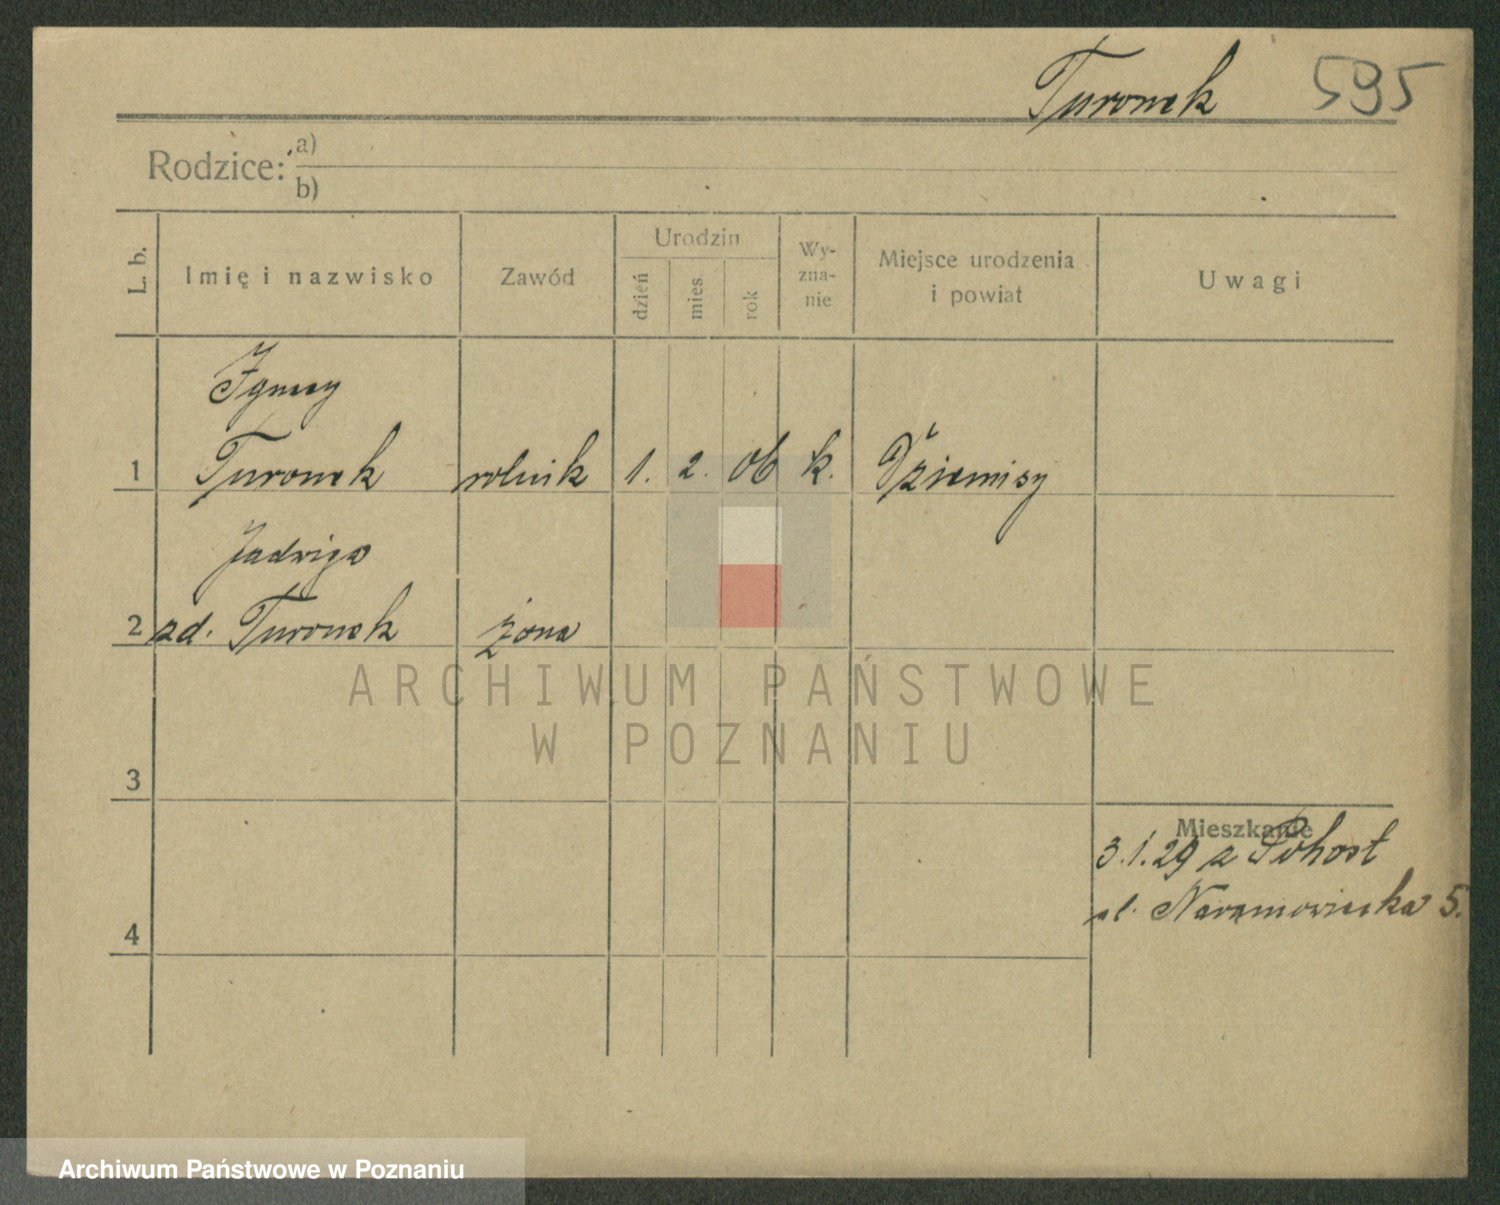 Turonek 595
Rodzice: a)
b)
L. b.
Imię i nazwisko
Zawód
Urodzin
dzień
mies
rok
Wy-
zna-
nie
Miejsce urodzenia
i powiat
Uwagi
Ignacy
1 Turonek rolnik 1. 2. 06 k.
Jadwiga
2 zd. Turonek żona
3
Mieszkanie
3.1.29 z Pohost
ul. Naramowicka 5.
4
ARCHIWUM PAŃSTWOWE
W POZNANIU
Archiwum Państwowe w Poznaniu